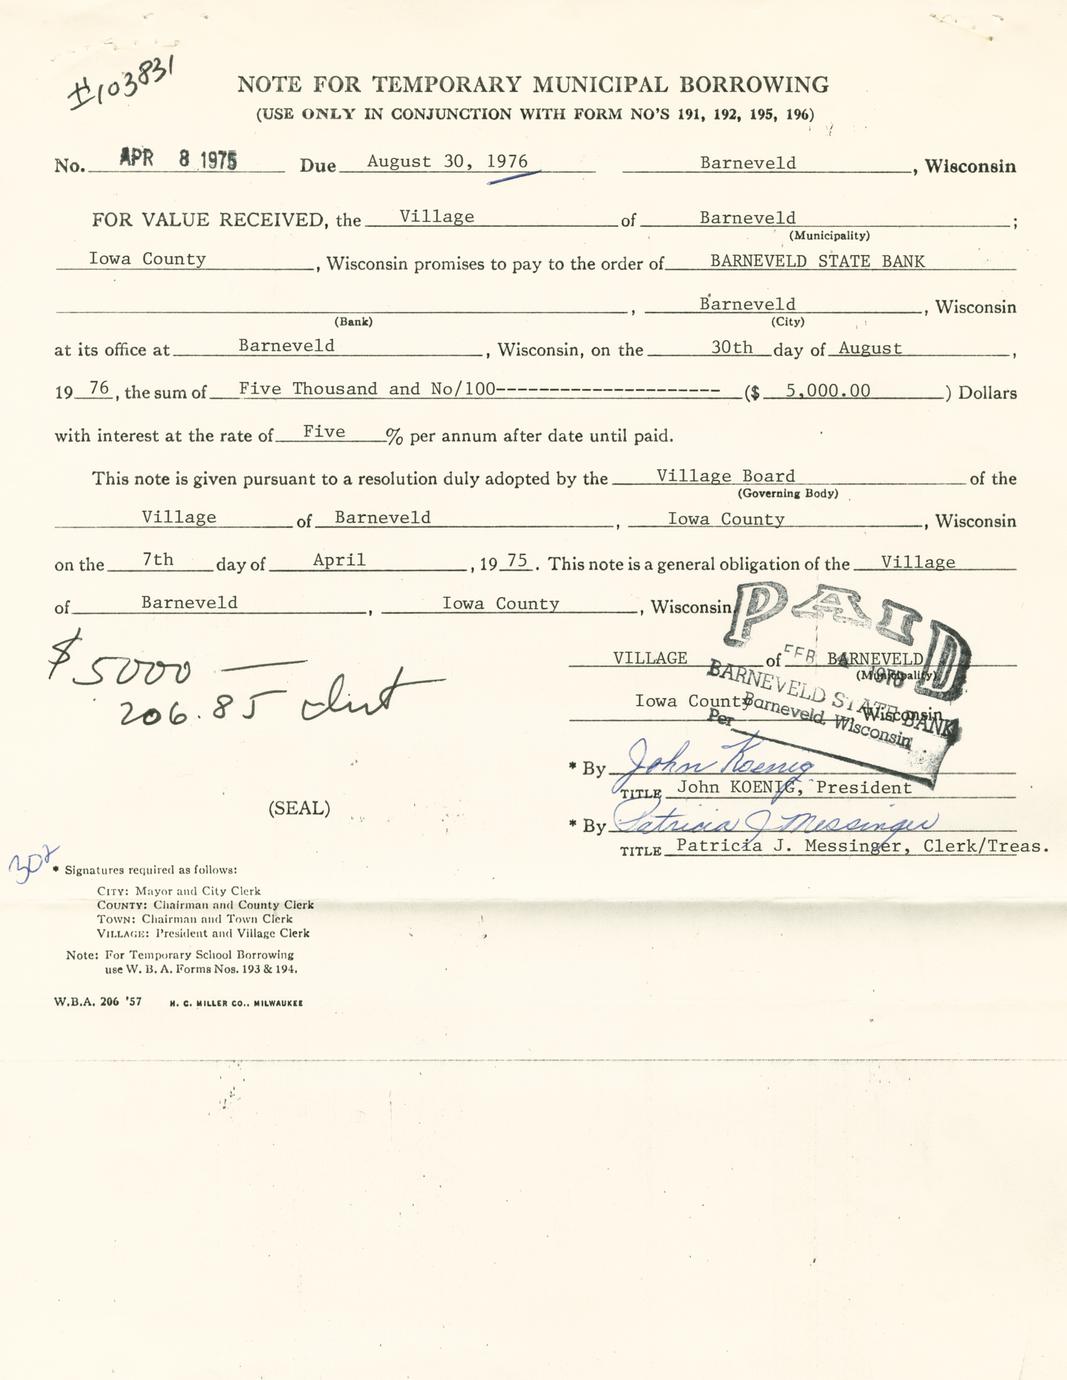 #103831
NOTE FOR TEMPORARY MUNICIPAL BORROWING
(USE ONLY IN CONJUNCTION WITH FORM NO'S 191, 192, 195, 196)
No. APR 8 1975 Due August 30, 1976 Barneveld, Wisconsin
FOR VALUE RECEIVED, the Village of Barneveld ;
(Municipality)
Iowa County, Wisconsin promises to pay to the order of BARNEVELD STATE BANK
, Barneveld, Wisconsin
(Bank) (City)
at its office at Barneveld, Wisconsin, on the 30th day of August,
19 76, the sum of Five Thousand and No/100--------------------- ($ 5,000.00 ) Dollars
with interest at the rate of Five % per annum after date until paid.
This note is given pursuant to a resolution duly adopted by the Village Board of the
(Governing Body)
Village of Barneveld, Iowa County, Wisconsin
on the 7th day of April, 19 75. This note is a general obligation of the Village
of Barneveld, Iowa County, Wisconsin
PAID
$5000 —
206.85
VILLAGE of BARNEVELD
FEB
(Municipality)
Iowa County Wisconsin
BARNEVELD STATE BANK
Barneveld, Wisconsin
Per
* By John Koenig
TITLE John KOENIG, President
(SEAL)
* By Patricia J Messinger
TITLE Patricia J. Messinger, Clerk/Treas.
* Signatures required as follows:
CITY: Mayor and City Clerk
COUNTY: Chairman and County Clerk
TOWN: Chairman and Town Clerk
VILLAGE: President and Village Clerk
Note: For Temporary School Borrowing
use W. B. A. Forms Nos. 193 & 194.
W.B.A. 206 '57 H. C. MILLER CO., MILWAUKEE